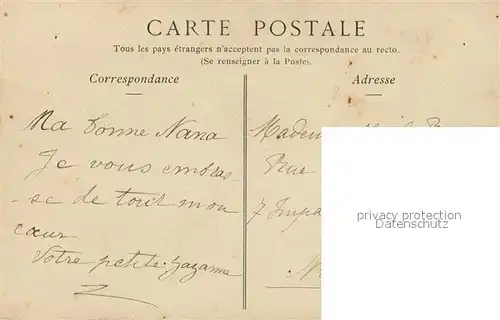 CARTE POSTALE
Tous les pays étrangers n'acceptent pas la correspondance au recto.
(Se renseigner à la Poste).
Correspondance
Adresse
Ma bonne Nana
Je vous embras-
-se de tout mon
cœur
Votre petite
Rue
7 Impa
privacy protection
Datenschutz